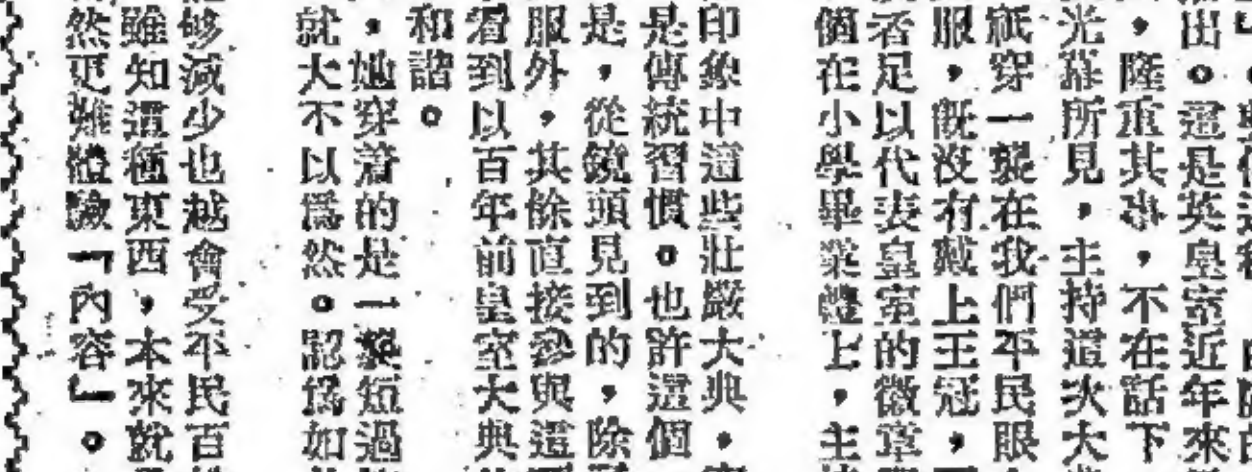 出。這是英皇室近年來
，隆重其事，不在話下
光幕所見，主持這次大
祇穿一襲在我們平民眼
服，既沒有戴上王冠，
者足以代表皇室的徽章
個在小學畢業禮上，主
印象中這些壯嚴大典，
是傳統習慣。也許這個
是，從鏡頭見到的，除
服外，其餘直接參與這
看到以百年前皇室大典
和諧。
，她穿着的是一襲短過
就大不以為然。認為如
能够減少也越會受平民百
雖知這種東西，本來就
然更難體驗「內容」。